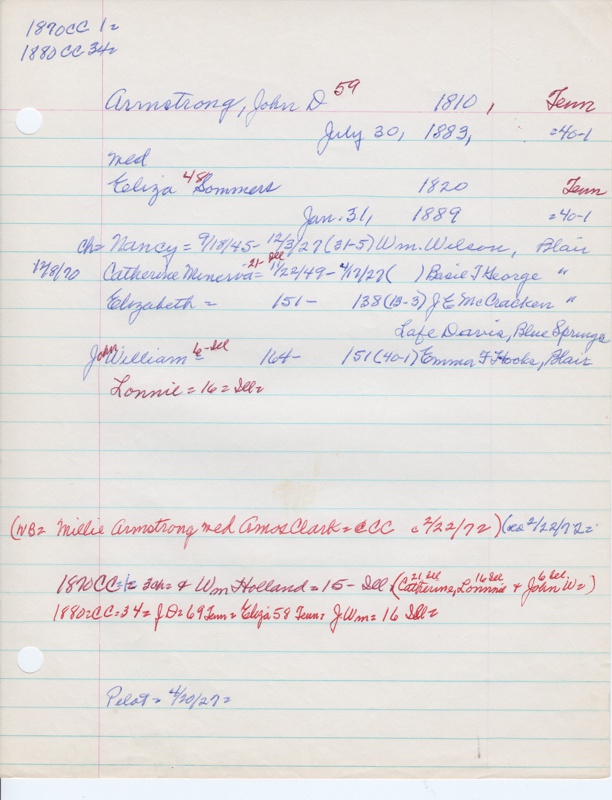 1870CC 1=
1880CC 34=
Armstrong, John D 59 1810, Tenn
July 30, 1883, =40-1
med
Eliza 48 Sommers 1820 Tenn
Jan. 31, 1889 =40-1
ch= Nancy = 9/18/45- 12/3/27 (31-5) Wm. Wilson, Blair
12/8/70 Catherine Minerva= -21- Ill 11/22/49- 4/17/27 ( ) Basie T George "
Elizabeth = 151- 138 (13-3) J E McCracken "
Lafe Davis, Blue Springs
John William = 6- Ill 164- 151 (40-1) Emma F Hooks, Blair
Lonnie = 16 = Ill=
(NB= Millie Armstrong med Amos Clark = CCC c 2/22/72) ( 2/22/72=
1870CC=1= 3ch= & Wm Holland = 15- Ill, (Catherine, 21 Ill Lonnie 16 Ill & John W= 6 Ill)
1880=CC=34= J D= 69 Tenn= Eliza 58 Tenn= J. Wm= 16 Ill=
Pelot= 4/20/27=